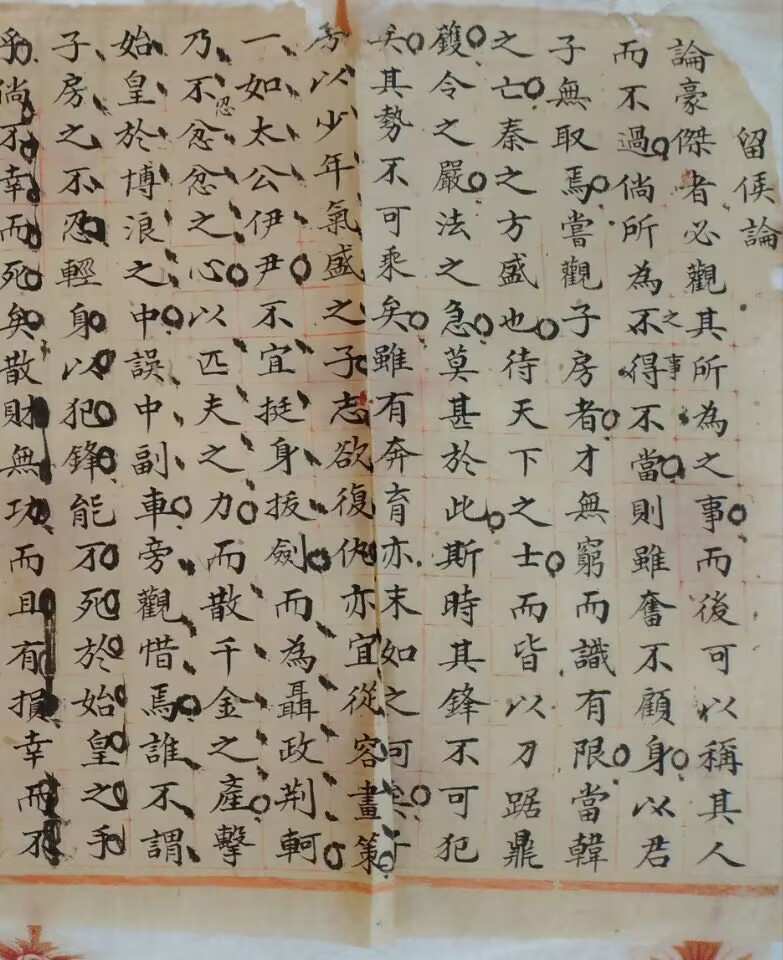 留侯論
論豪傑者必觀其所為之事而後可以稱其人
而不過倘所為之事不得不當則雖奮不顧身以君
子無取焉嘗觀子房者才無窮而識有限當韓
之亡秦之方盛也待天下之士而皆以刀踞鼎
鑊令之嚴法之急莫甚於此斯時其鋒不可犯
矣其勢不可乘矣雖有奔育亦末如之何矣子
房以少年氣盛之子志欲復仇亦宜從容畫策
一如太公伊尹不宜挺身拔劍而為聶政荊軻
乃不忍忿忿之心以匹夫之力而散千金之產擊
始皇於博浪之中誤中副車旁觀惜焉誰不謂
子房之不忍輕身以犯鋒能不死於始皇之手
乎倘不幸而死矣散財無功而且有損幸而不